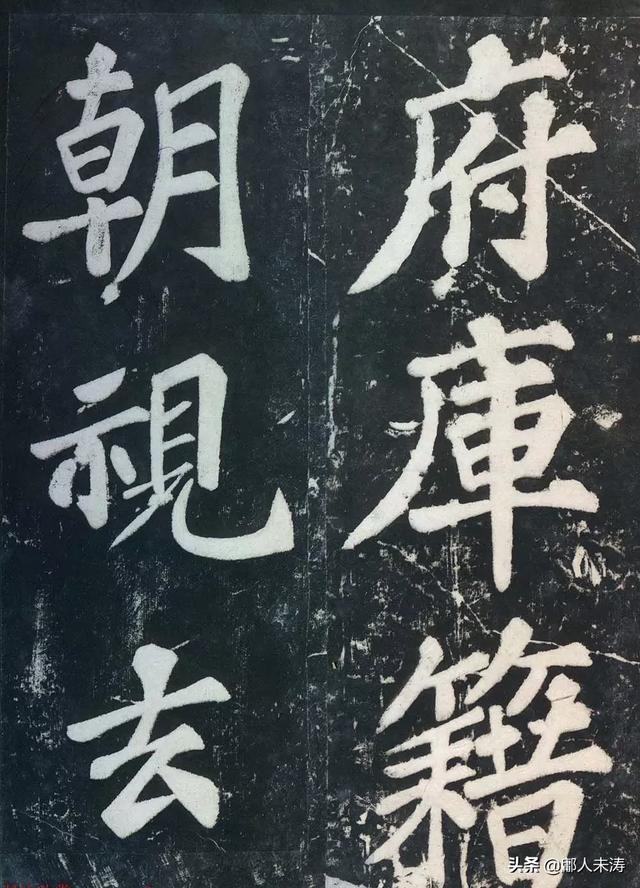 府庫籍
朝視去
头条 @郈人未涛